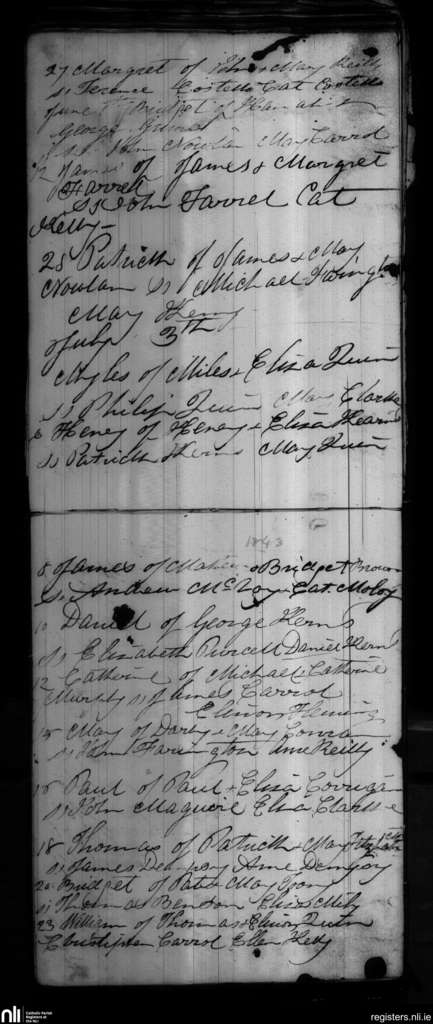 27 Margret of John & May Reilly
Ss Terence Costello Cat Costello
June Bridget of Hanah &
George
Ss John Nowlan May Carrol
12 James of James & Margret
Farrell
Ss John Farrel Cat
Kelly
25 Patrick of James & May
Nowlan Ss Michael
May
July 3th
Myles of Miles & Eliza Quin
Ss Philip Quin May Clarke
Heney of Heney & Eliza Kearns
Ss Patrick Kerns May Quin
1843
8 James of Mathew & Bridget Brown
Ss Andrew McVoy & Cat. Moloy
10 Daniel of George Kerns
Ss Elizabeth Purcell Daniel Kerns
12 Catherine of Michael & Catherine
Murphy Ss James Carrol
Elinor Fleming
15 May of Darby & May Conran
Ss Farrington Ann Reilly
15 Paul of Paul & Eliza Corrigan
Ss John Maguire Eliza Clarke
18 Thomas of Patrick & May
Ss James Dempsey Anne Dempsy
20 Bridget of Pat & May
Ss Thomas Eliza
23 William of Thomas & Elinor Quin
Christopher Carrol Ellen Kelly
nli
Catholic Parish
Registers at
the NLI
registers.nli.ie